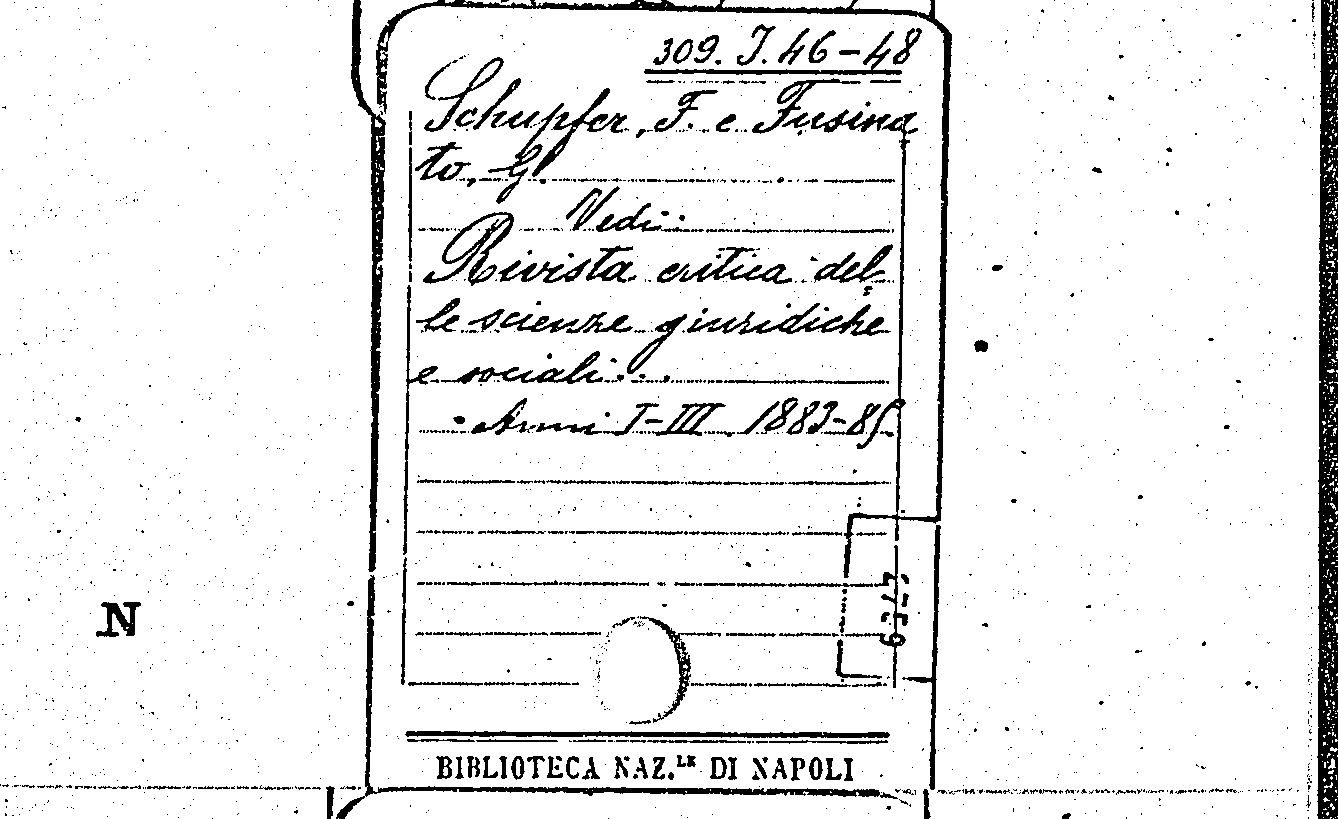 309. J. 46-48
Schupfer, F. e Fusina
to, G.
Vedi:
Rivista critica del
le scienze giuridiche
e sociali...
Anni I-III. 1883-85.
N
BIBLIOTECA NAZ.LE DI NAPOLI